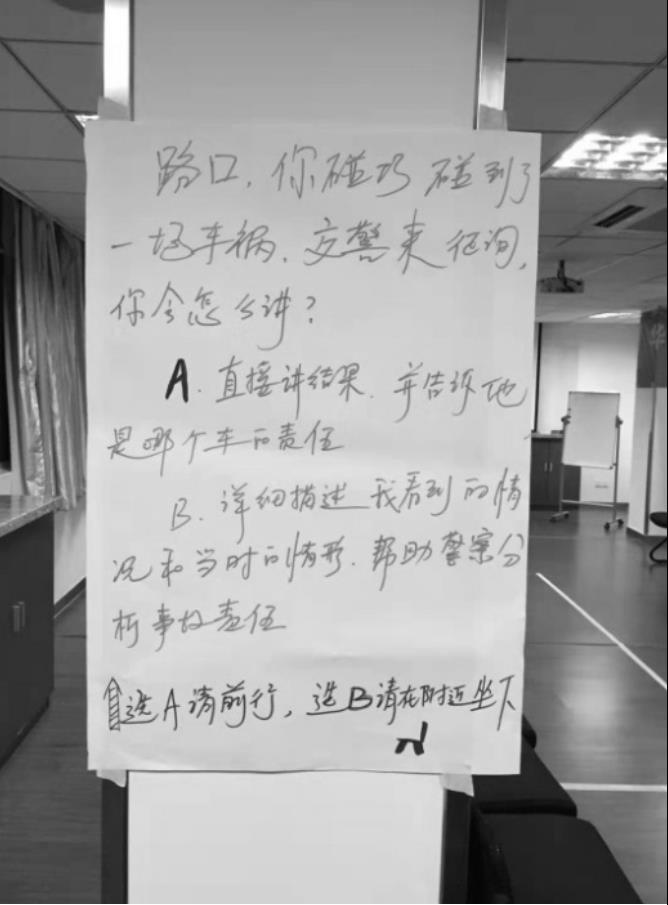 路口,你碰巧碰到了
一场车祸,交警来征询,
你会怎么讲?
A.直接讲结果,并告诉他
是哪个车的责任
B.详细描述我看到的情
况和当时的情形,帮助警察分
析事故责任
选A请前行,选B请在附近坐下